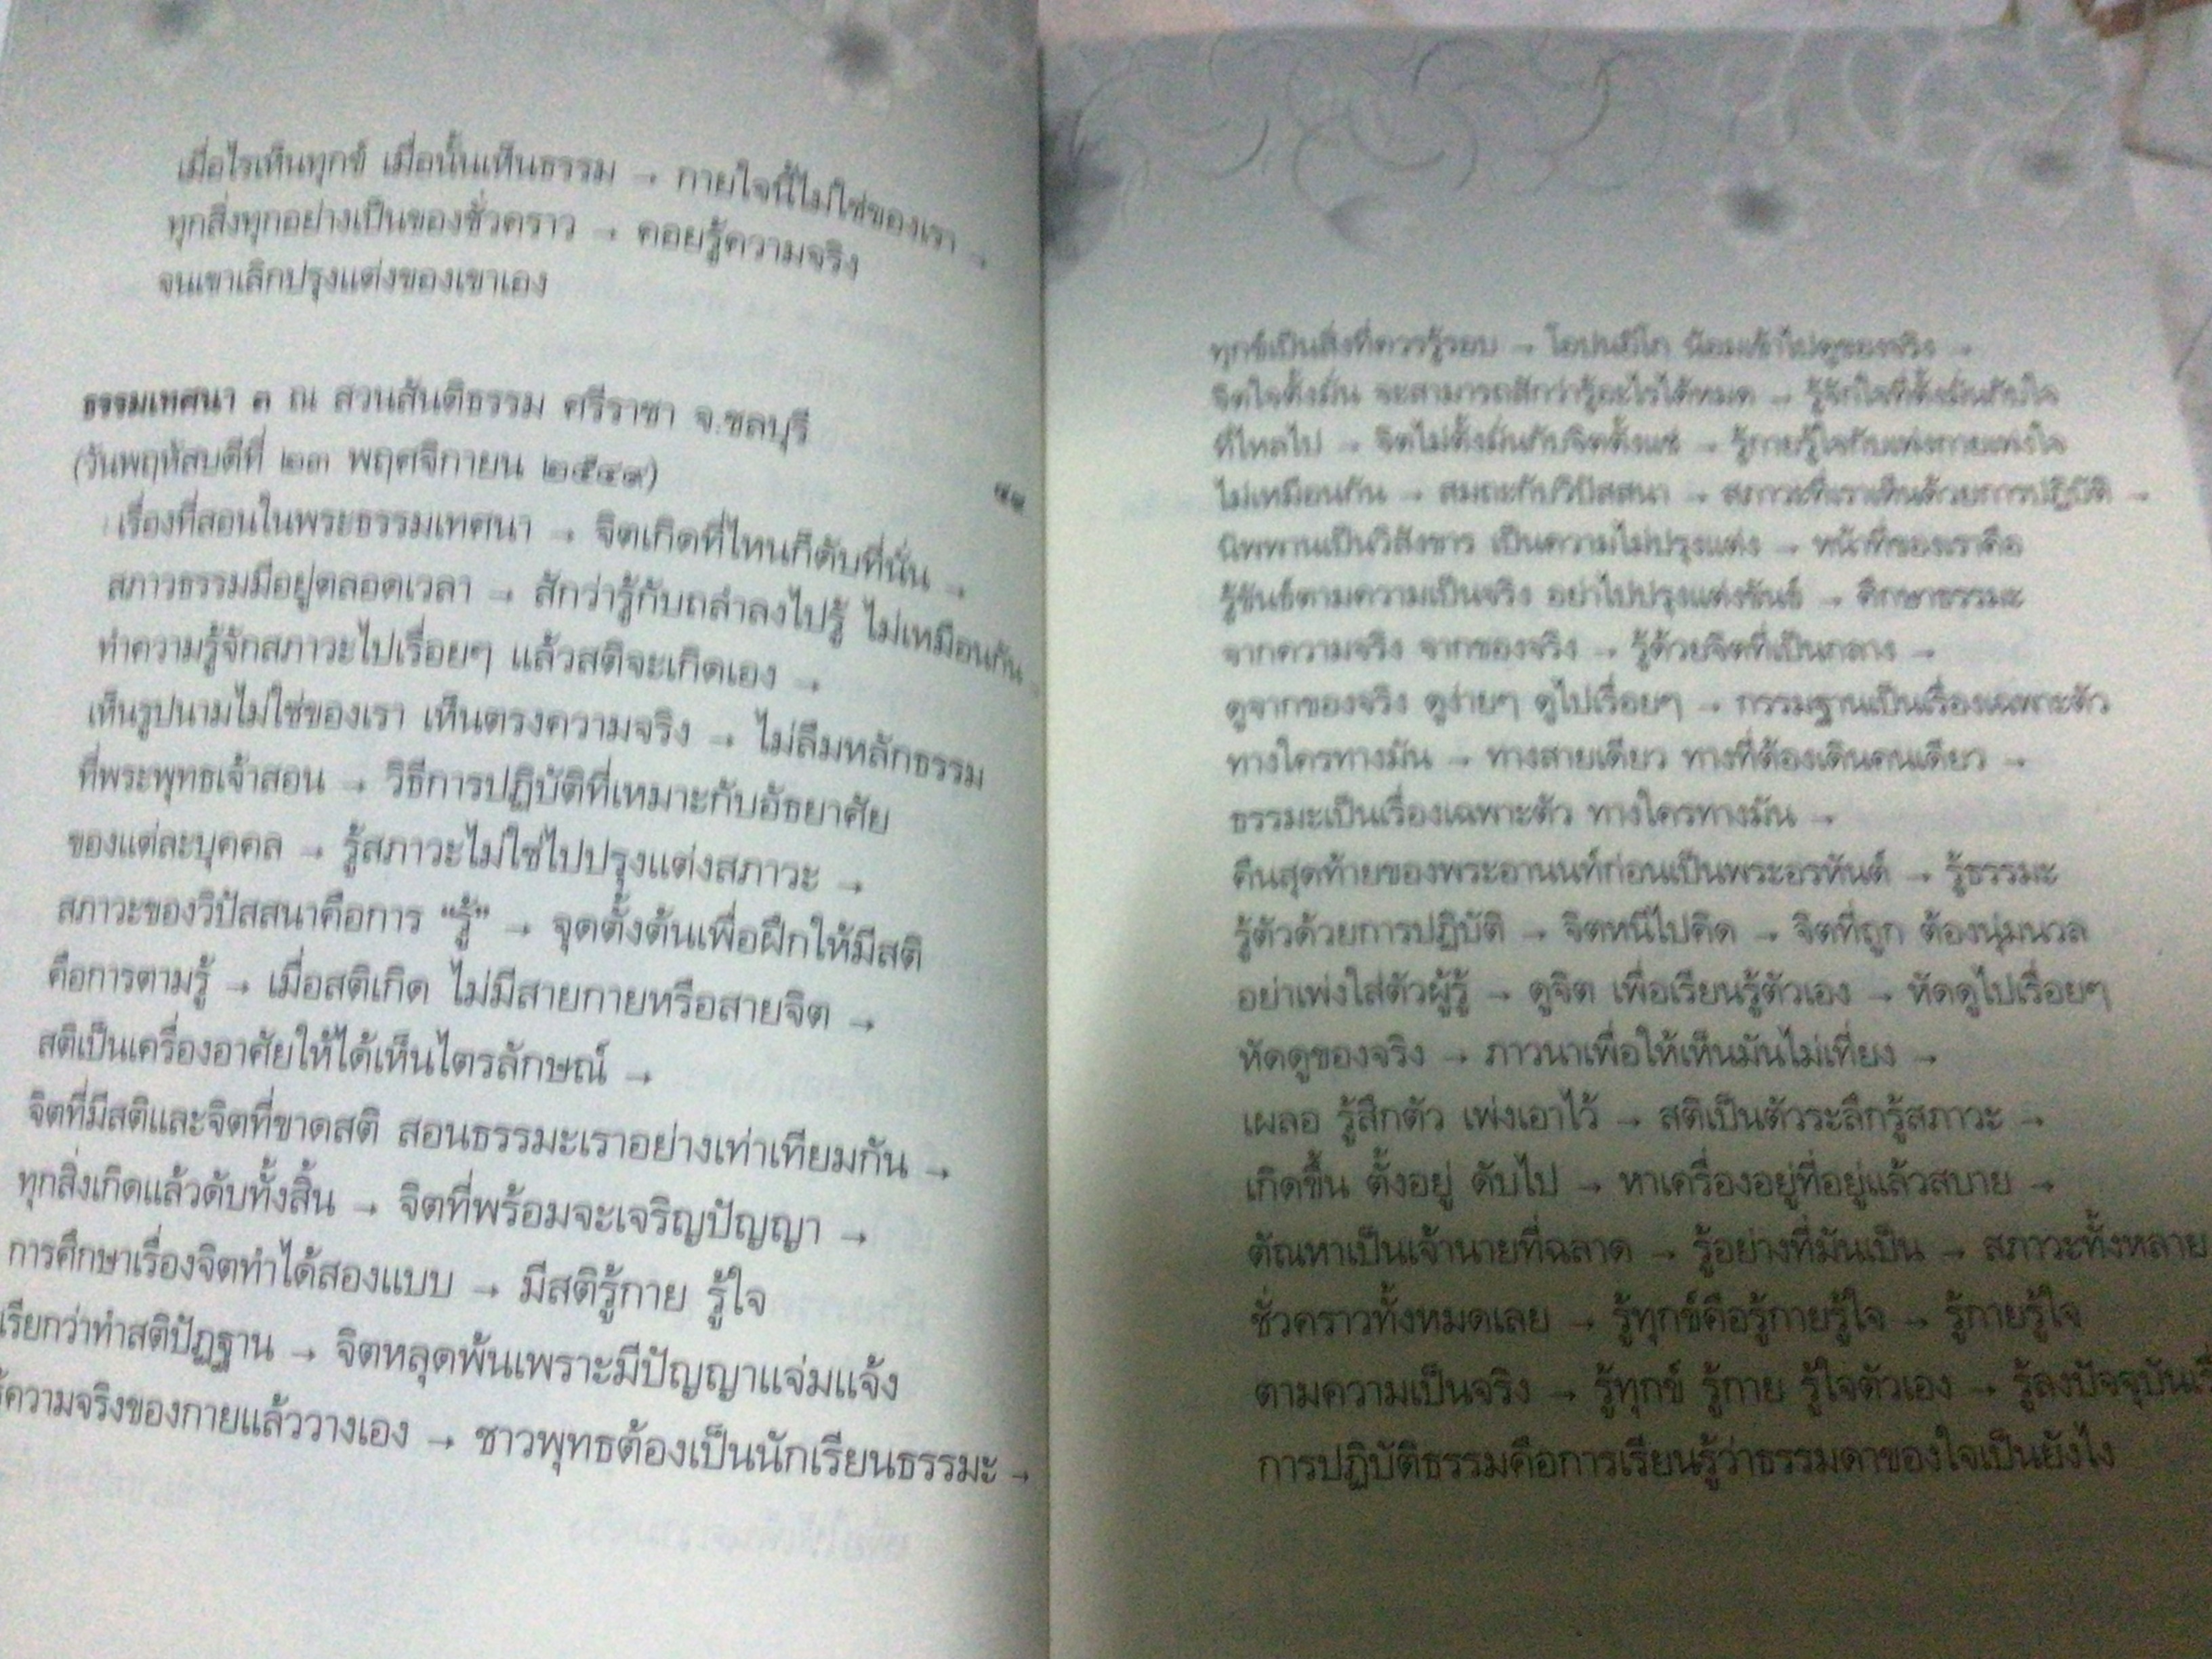 เมื่อไรเห็นทุกข์ เมื่อนั้นเห็นธรรม → กายใจนี้ไม่ใช่ของเรา →
ทุกสิ่งทุกอย่างเป็นของชั่วคราว → คอยรู้ความจริง
จนเขาเลิกปรุงแต่งของเขาเอง
ธรรมเทศนา ๓ ณ สวนสันติธรรม ศรีราชา จ.ชลบุรี
(วันพฤหัสบดีที่ ๒๓ พฤศจิกายน ๒๕๔๙)
เรื่องที่สอนในพระธรรมเทศนา → จิตเกิดที่ไหนก็ดับที่นั่น →
สภาวธรรมมีอยู่ตลอดเวลา → สักว่ารู้กับถลำลงไปรู้ ไม่เหมือนกัน →
ทำความรู้จักสภาวะไปเรื่อยๆ แล้วสติจะเกิดเอง →
เห็นรูปนามไม่ใช่ของเรา เห็นตรงความจริง → ไม่ลืมหลักธรรม
ที่พระพุทธเจ้าสอน → วิธีการปฏิบัติที่เหมาะกับอัธยาศัย
ของแต่ละบุคคล → รู้สภาวะไม่ใช่ไปปรุงแต่งสภาวะ →
สภาวะของวิปัสสนาคือการ "รู้" → จุดตั้งต้นเพื่อฝึกให้มีสติ
คือการตามรู้ → เมื่อสติเกิด ไม่มีสายกายหรือสายจิต →
สติเป็นเครื่องอาศัยให้ได้เห็นไตรลักษณ์ →
จิตที่มีสติและจิตที่ขาดสติ สอนธรรมะเราอย่างเท่าเทียมกัน →
ทุกสิ่งเกิดแล้วดับทั้งสิ้น → จิตที่พร้อมจะเจริญปัญญา →
การศึกษาเรื่องจิตทำได้สองแบบ → มีสติรู้กาย รู้ใจ
เรียกว่าทำสติปัฏฐาน → จิตหลุดพ้นเพราะมีปัญญาแจ่มแจ้ง
รู้ความจริงของกายแล้ววางเอง → ชาวพุทธต้องเป็นนักเรียนธรรมะ →
ทุกข์เป็นสิ่งที่ควรรู้รอบ → โอปนยิโก น้อมเข้าไปดูของจริง →
จิตใจตั้งมั่น จะสามารถสักว่ารู้อะไรได้หมด → รู้จักใจที่ตั้งมั่นกับใจ
ที่ไหลไป → จิตไม่ตั้งมั่นกับจิตตั้งแช่ → รู้กายรู้ใจกับเพ่งกายเพ่งใจ
ไม่เหมือนกัน → สมถะกับวิปัสสนา → สภาวะที่เราเดินด้วยการปฏิบัติ →
นิพพานเป็นวิสังขาร เป็นความไม่ปรุงแต่ง → หน้าที่ของเราคือ
รู้ขันธ์ตามความเป็นจริง อย่าไปปรุงแต่งขันธ์ → ศึกษาธรรมะ
จากความจริง จากของจริง → รู้ด้วยจิตที่เป็นกลาง →
ดูจากของจริง ดูง่ายๆ ดูไปเรื่อยๆ → กรรมฐานเป็นเรื่องเฉพาะตัว
ทางใครทางมัน → ทางสายเดียว ทางที่ต้องเดินคนเดียว →
ธรรมะเป็นเรื่องเฉพาะตัว ทางใครทางมัน →
คืนสุดท้ายของพระอานนท์ก่อนเป็นพระอรหันต์ → รู้ธรรมะ
รู้ตัวด้วยการปฏิบัติ → จิตหนีไปคิด → จิตที่ถูก ต้องนุ่มนวล
อย่าเพ่งใส่ตัวผู้รู้ → ดูจิต เพื่อเรียนรู้ตัวเอง → หัดดูไปเรื่อยๆ
หัดดูของจริง → ภาวนาเพื่อให้เห็นมันไม่เที่ยง →
เผลอ รู้สึกตัว เพ่งเอาไว้ → สติเป็นตัวระลึกรู้สภาวะ →
เกิดขึ้น ตั้งอยู่ ดับไป → หาเครื่องอยู่ที่อยู่แล้วสบาย →
ตัณหาเป็นเจ้านายที่ฉลาด → รู้อย่างที่มันเป็น → สภาวะทั้งหลาย
ชั่วคราวทั้งหมดเลย → รู้ทุกข์คือรู้กายรู้ใจ → รู้กายรู้ใจ
ตามความเป็นจริง → รู้ทุกข์ รู้กาย รู้ใจตัวเอง → รู้ลงปัจจุบัน
การปฏิบัติธรรมคือการเรียนรู้ว่าธรรมดาของใจเป็นยังไง